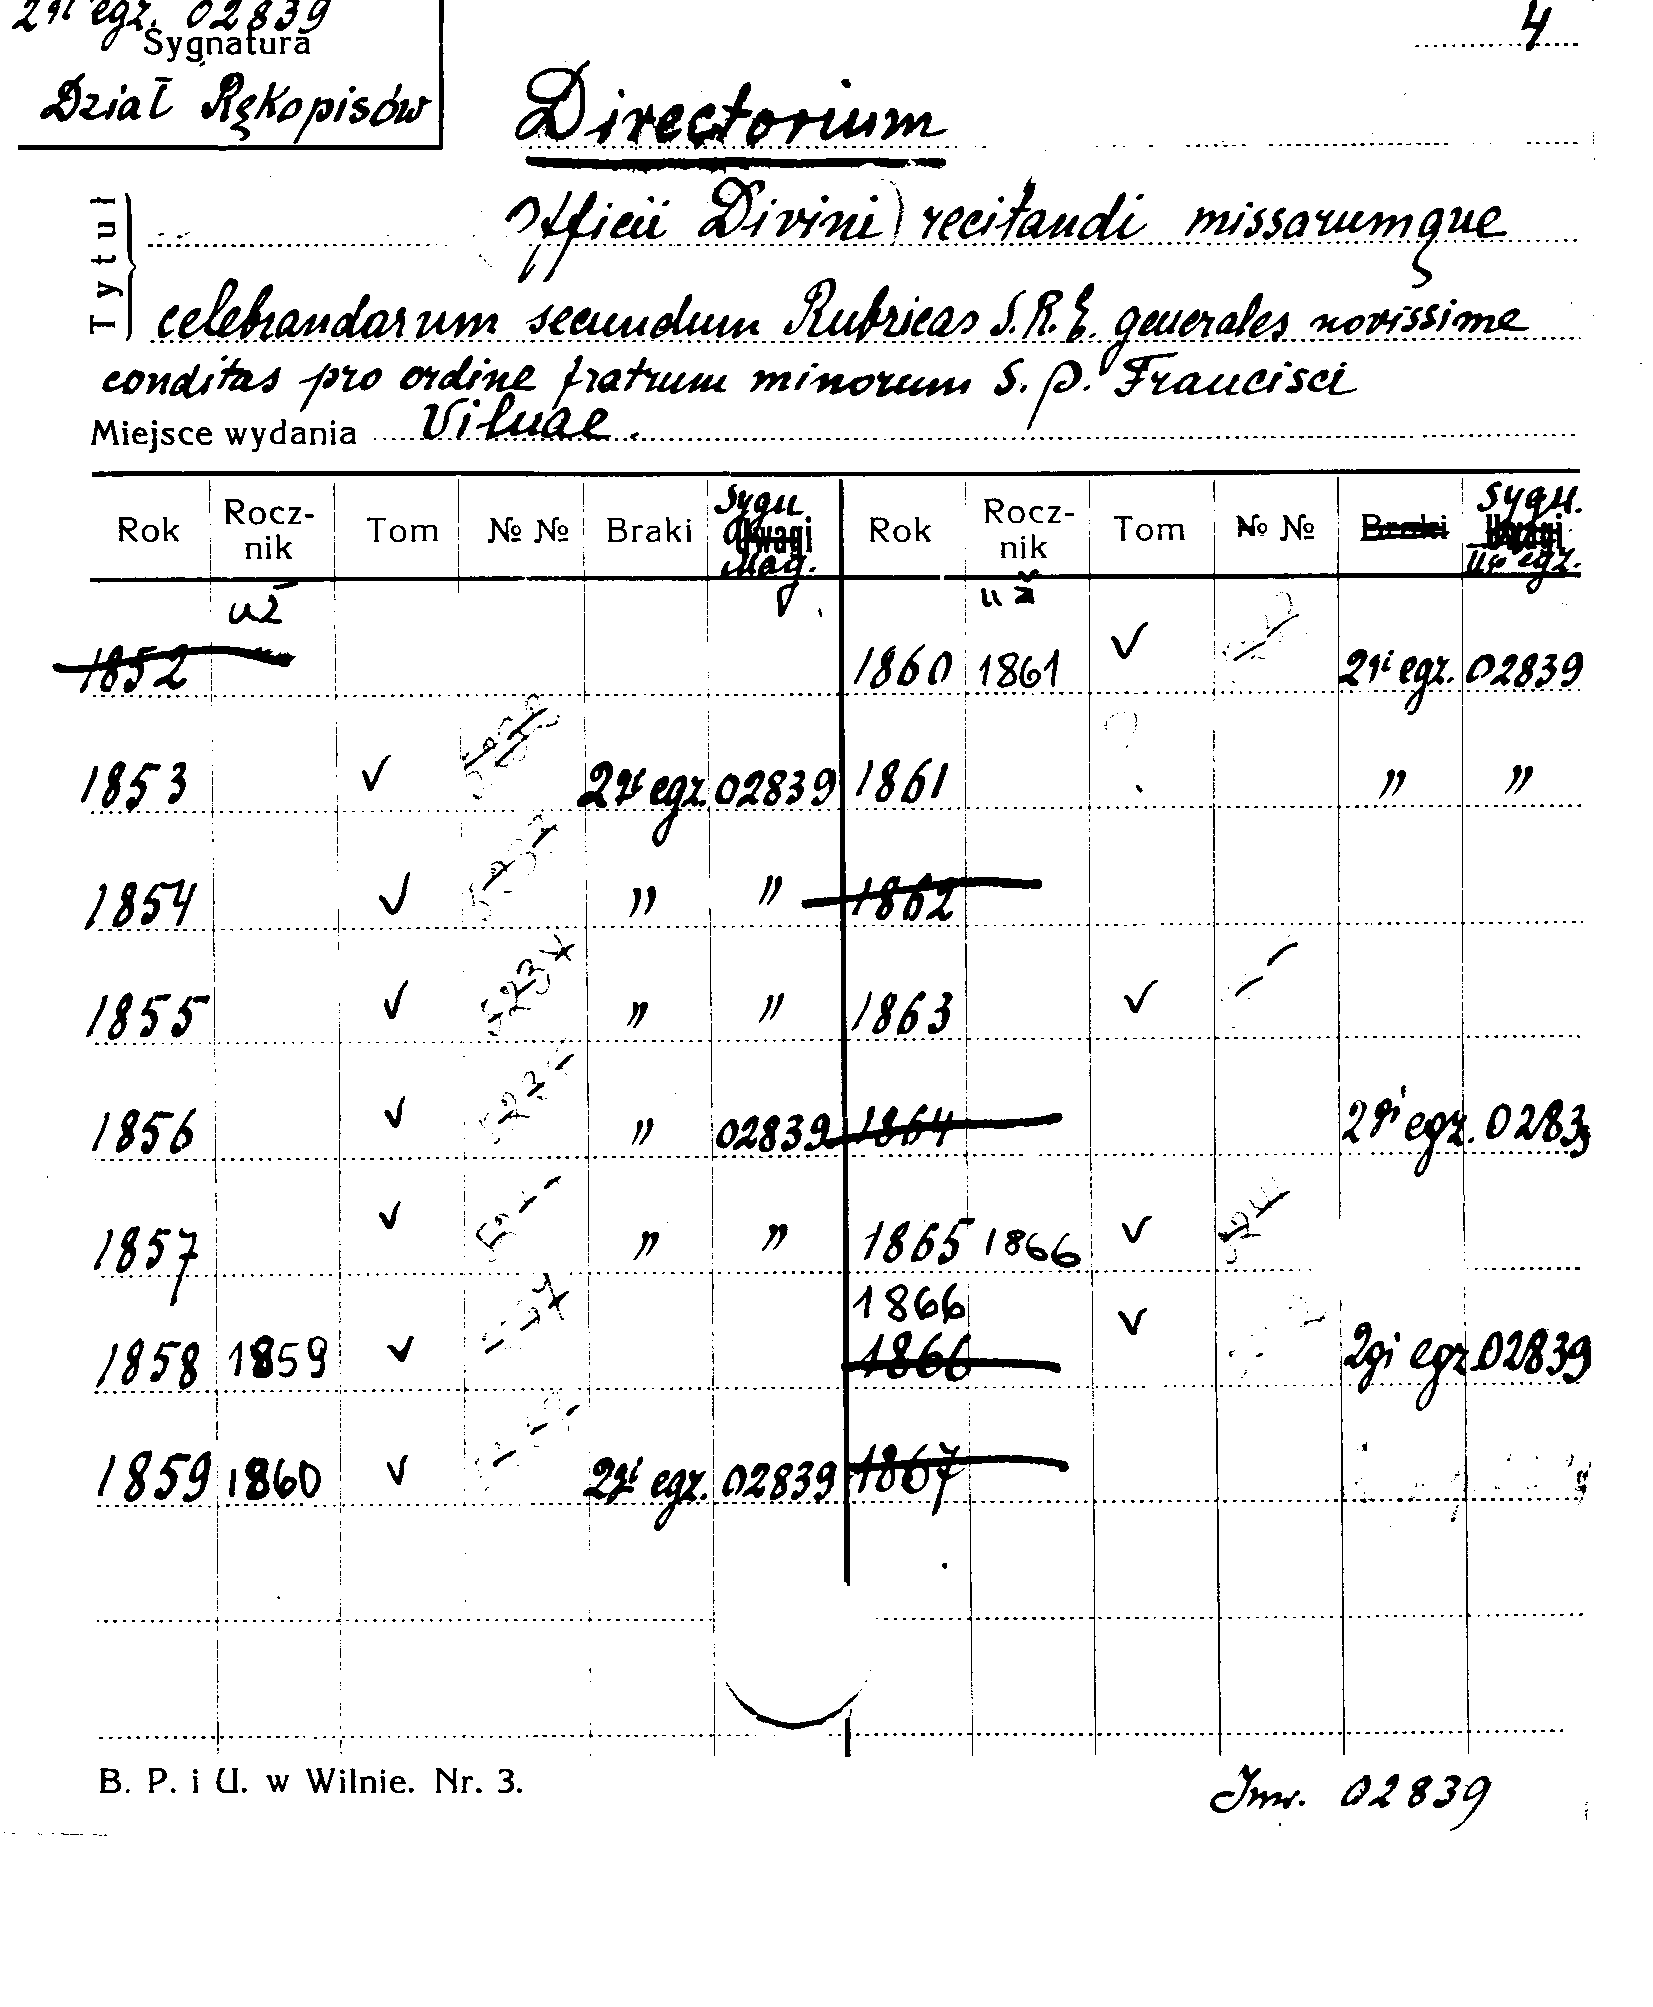 2gi egz. 02839
4
Sygnatura
Dział Rękopisów
Directorium
Tytuł
Officii Divini) recitandi missarumque
celebrandarum secundum Rubricas S. R. E. generales novissime
conditas pro ordine fratrum minorum S. P. Francisci
Miejsce wydania Vilnae.
Rok Rocz-nik Tom № № Braki Sygn. Uwagi Mag. Rok Rocz-nik Tom № № Braki Sygn. Uwagi egz.
1852 1860 1861 ✓ 2gi egz. 02839
1853 ✓ 2gi egz. 02839 1861 " "
1854 ✓ " " 1862
1855 ✓ " " 1863 ✓
1856 ✓ " 02839 1864 2gi egz. 0283
1857 ✓ " " 1865 1866 ✓
1866
1858 1859 ✓ 1866 ✓ 2gi egz. 02839
1859 1860 ✓ 2gi egz. 02839 1867
B. P. i U. w Wilnie. Nr. 3.
Inw. 02839